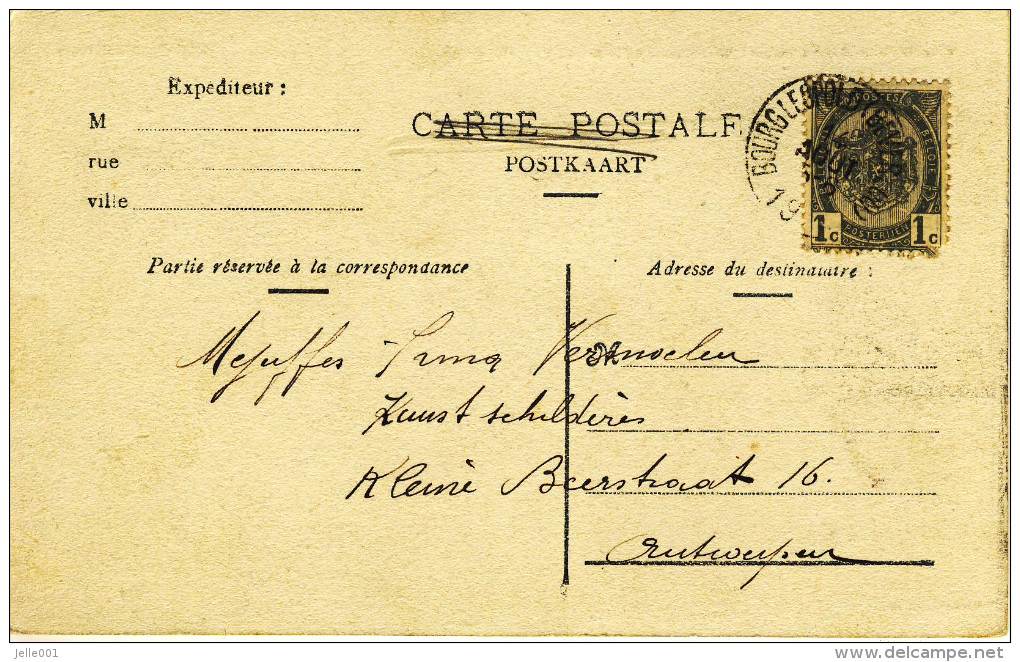 Expéditeur :
M
rue
ville
CARTE POSTALE
POSTKAART
BOURG LEOPOLD
19
POSTERIJEN
BELGIE
1c 1c
Partie réservée à la correspondance
Adresse du destinataire :
Mejuffer Irma Vermoelen
Kunstschilderès
Kleine Beerstraat 16.
Antwerpen
jelle001
delcampe.net